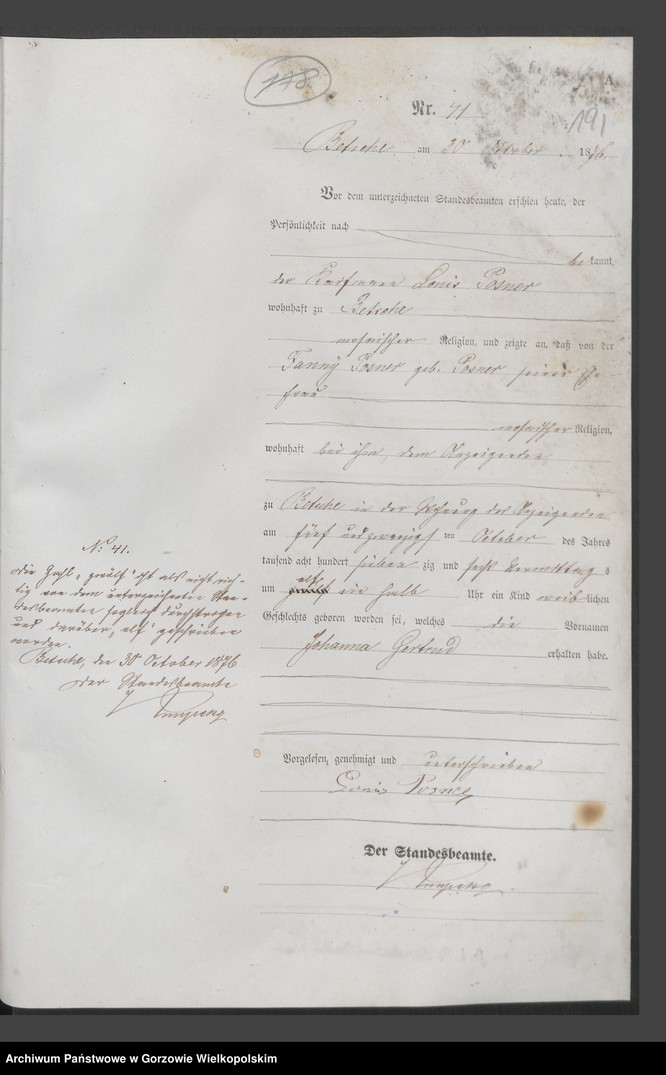 178.
A.
191
Nr. 41
Betsche am 30 October 1876.
Vor dem unterzeichneten Standesbeamten erschien heute, der
Persönlichkeit nach
bekannt,
der Kaufmann Louis Posner
wohnhaft zu Betsche
mosaischer Religion, und zeigte an, daß von der
Fanny Posner geb. Posner seiner Ehe-
frau
mosaischer Religion,
wohnhaft bei ihm, dem Anzeigenden
zu Betsche in der Wohnung des Anzeigenden
am fünf und zwanzigsten October des Jahres
tausend acht hundert sieben zig und sechs Vormittag s
um zwölf elf ein halb Uhr ein Kind weiblichen
Geschlechts geboren worden sei, welches die Vornamen
Johanna Gertrud
erhalten habe.
No: 41.
Die Zahl „zwölf" ist als nicht rich-
tig von dem unterzeichneten Stan-
desbeamten sogleich durchstrichen
und darüber „elf" geschrieben
worden.
Betsche, den 30 October 1876
Der Standesbeamte
Vorgelesen, genehmigt und unterschrieben
Louis Posner
Der Standesbeamte.
Archiwum Państwowe w Gorzowie Wielkopolskim